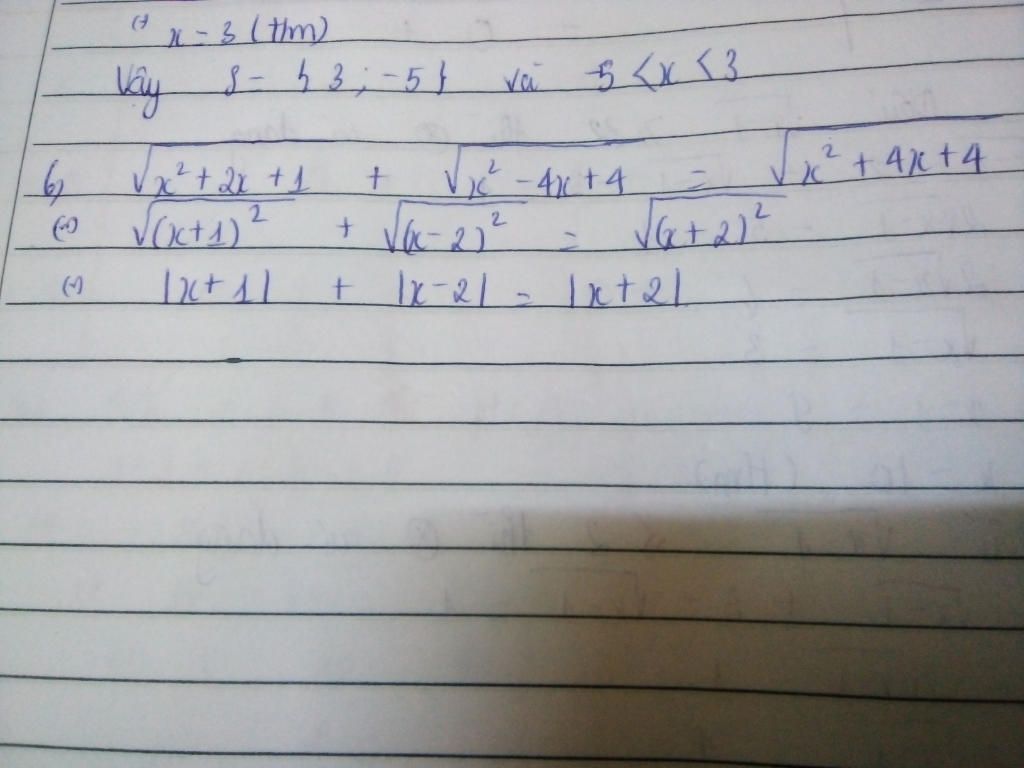 (-) x = 3 (t/m)
Vậy S = { 3 ; -5 } và -5 < x < 3
6) √(x² + 2x + 1) + √(x² - 4x + 4) = √(x² + 4x + 4)
(-) √((x+1)²) + √((x-2)²) = √((x+2)²)
(-) |x+1| + |x-2| = |x+2|